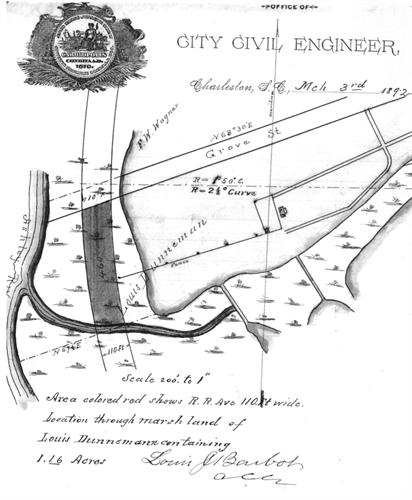 OFFICE OF
CITY CIVIL ENGINEER,
Charleston, S.C., Mch 3rd 1893
CONDITA A.D.
1670.
F. W. Wagner
N 68°30'E
Grove St
R = 1°50'c.
R = 2½° Curve
110'
Louis Dunneman
Fence
110ft
Scale 200' to 1"
Area colored red shows R.R. Ave 110 ft wide.
Location through marsh land of
Louis Dunnemann containing
1.16 Acres
Louis J Barbot